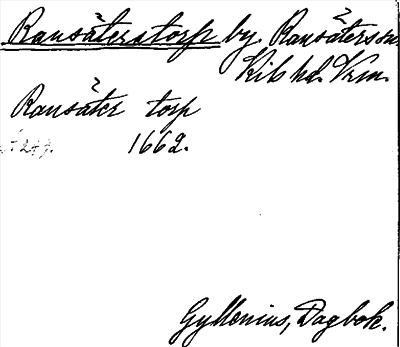 Ransäterstorp by. Ransäters sn.
Kils hd. Vrm.
Ransäter torp
1662.
Gyllenius, Dagbok.